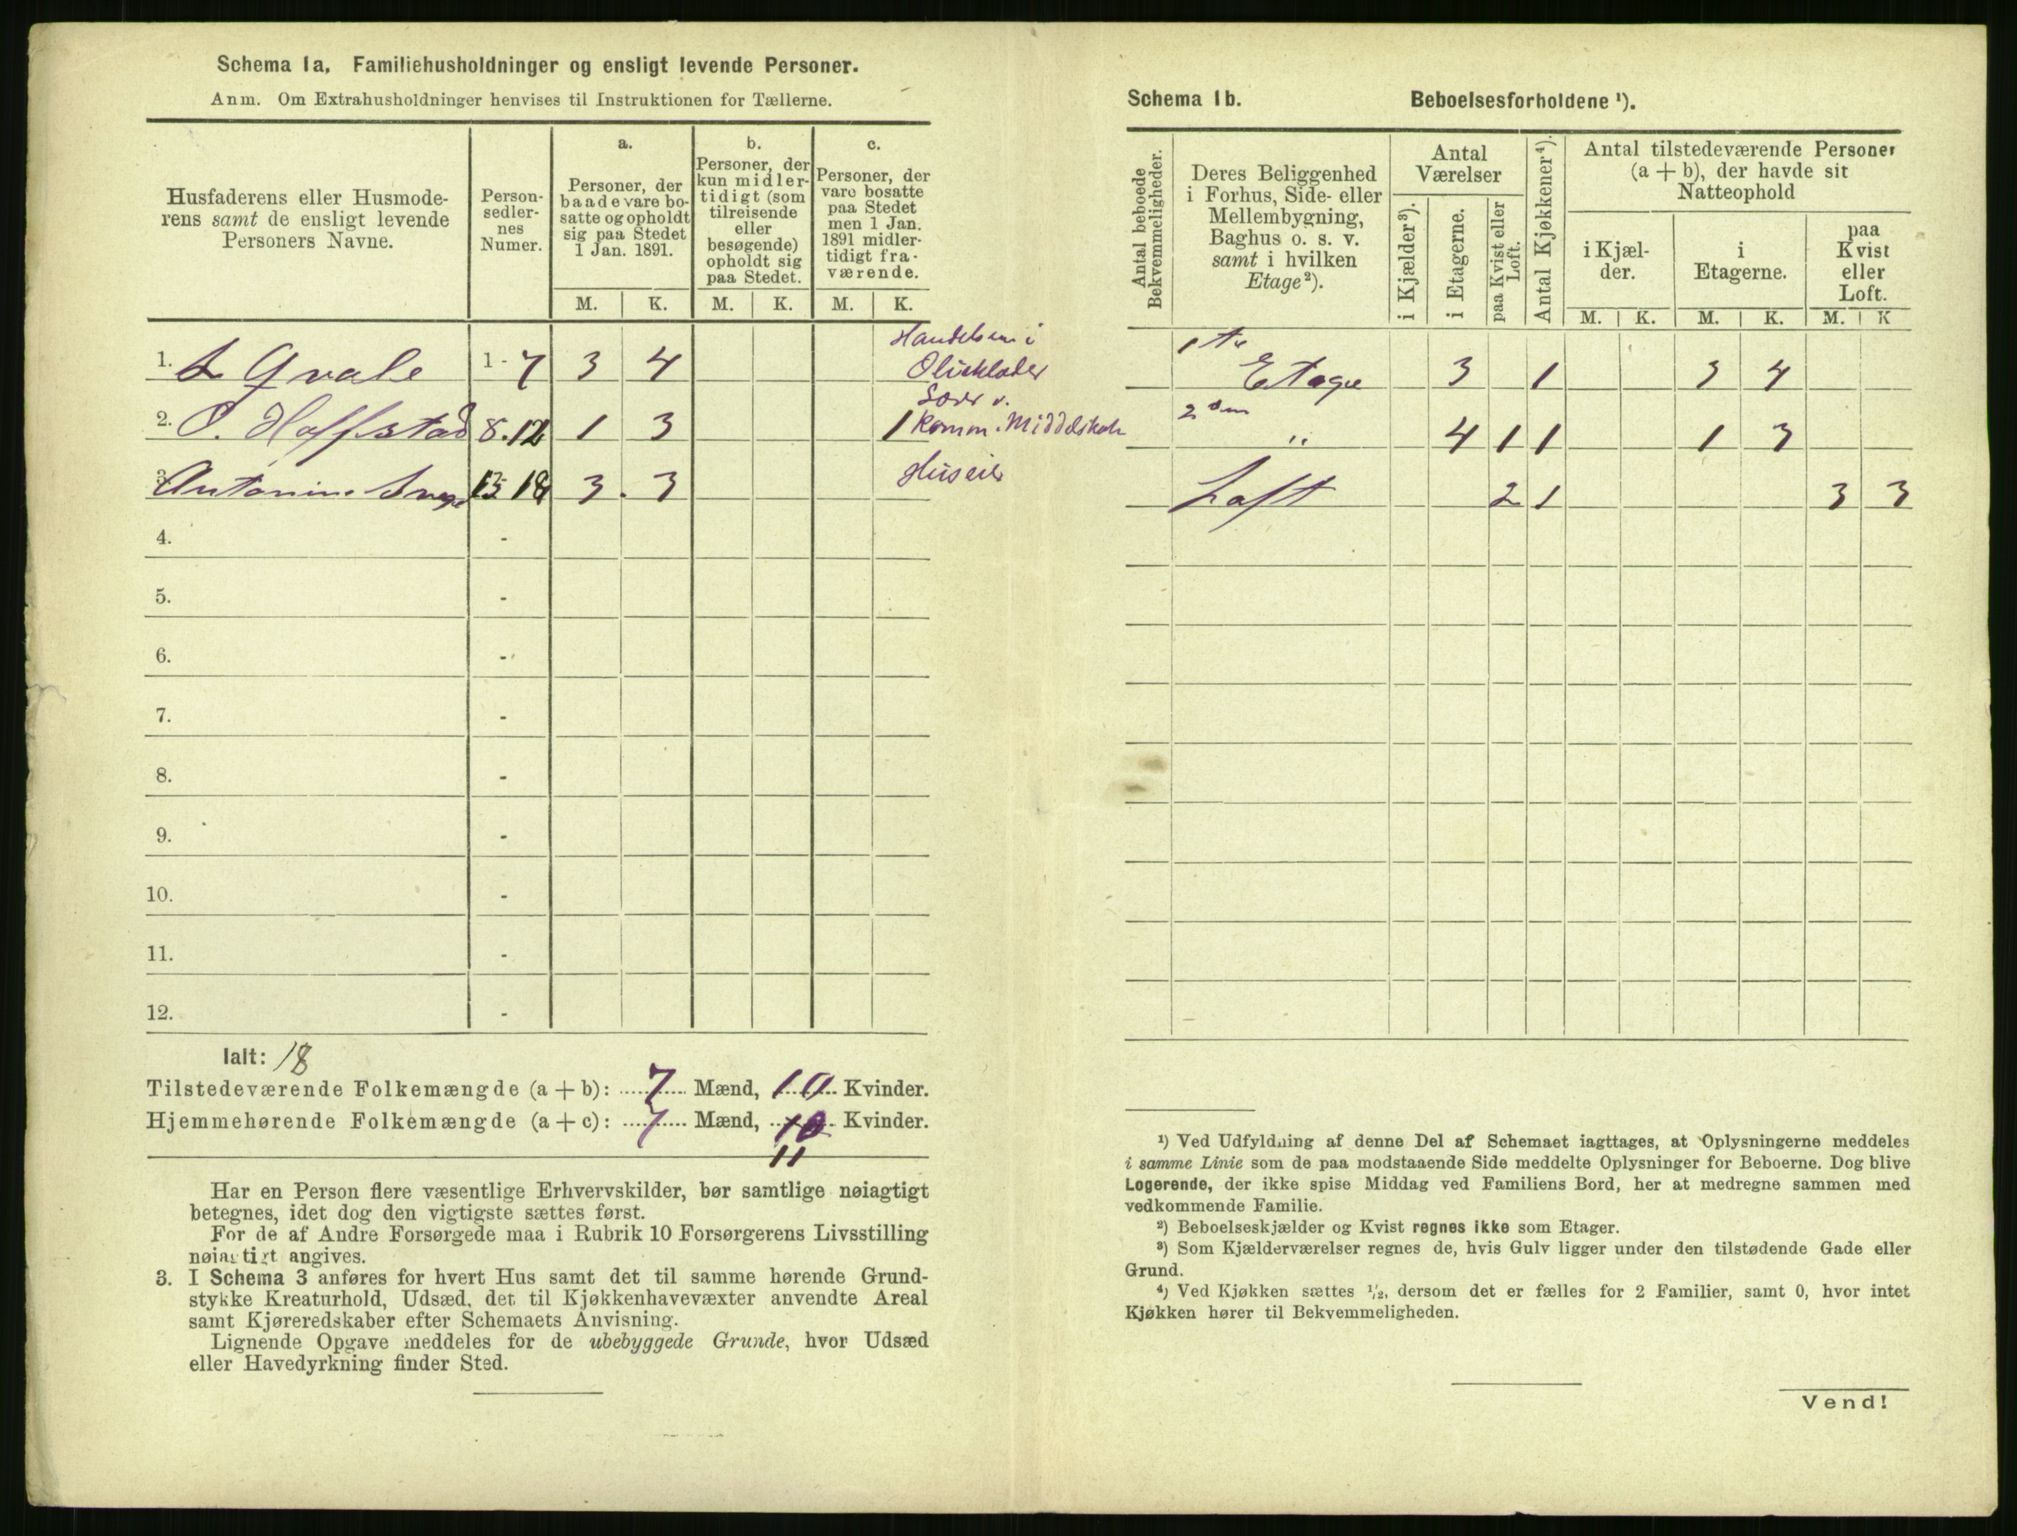 Schema 1a. Familiehusholdninger og ensligt levende Personer.
Anm. Om Extrahusholdninger henvises til Instruktionen for Tællerne.
Husfaderens eller Husmode-
rens samt de ensligt levende
Personers Navne.
Person-
sedler-
nes
Numer.
a.
Personer, der
baade vare bo-
satte og opholdt
sig paa Stedet
1 Jan. 1891.
b.
Personer, der
kun midler-
tidigt (som
tilreisende
eller
besøgende)
opholdt sig
paa Stedet.
c.
Personer, der
vare bosatte
paa Stedet
men 1 Jan.
1891 midler-
tidigt fra-
værende.
M. K. M. K. M. K.
1. L Qvale 1-7 3 4 Handelsm i
2. O. Hoffstad 8-12 1 3 1 Komm. Middelskole
3. Antonius 13 18 3 3 Huseier
4. -
5. -
6. -
7. -
8. -
9. -
10. -
11. -
12. -
Ialt: 18
Tilstedeværende Folkemængde (a + b): 7 Mænd, 10 Kvinder.
Hjemmehørende Folkemængde (a + c): 7 Mænd, 10 Kvinder.
11
Har en Person flere væsentlige Erhvervskilder, bør samtlige nøiagtigt
betegnes, idet dog den vigtigste sættes først.
For de af Andre Forsørgede maa i Rubrik 10 Forsørgerens Livsstilling
nøiagtigt angives.
3. I Schema 3 anføres for hvert Hus samt det til samme hørende Grund-
stykke Kreaturhold, Udsæd, det til Kjøkkenhavevæxter anvendte Areal
samt Kjøreredskaber efter Schemaets Anvisning.
Lignende Opgave meddeles for de ubebyggede Grunde, hvor Udsæd
eller Havedyrkning finder Sted.
Schema 1b. Beboelsesforholdene ¹).
Antal beboede
Bekvemmeligheder.
Deres Beliggenhed
i Forhus, Side- eller
Mellembygning,
Baghus o. s. v.
samt i hvilken
Etage²).
Antal
Værelser
i Kjælder³).
i Etagerne.
paa Kvist eller
Loft.
Antal Kjøkkener⁴).
Antal tilstedeværende Personer
(a + b), der havde sit
Natteophold
i Kjæl-
der.
i
Etagerne.
paa
Kvist
eller
Loft.
M. K. M. K. M. K
1ste
Etage 3 1 3 4
2den
" 4 1 1 1 3
Loft 2 1 3 3
¹) Ved Udfyldning af denne Del af Schemaet iagttages, at Oplysningerne meddeles
i samme Linie som de paa modstaaende Side meddelte Oplysninger for Beboerne. Dog blive
Logerende, der ikke spise Middag ved Familiens Bord, her at medregne sammen med
vedkommende Familie.
²) Beboelseskjælder og Kvist regnes ikke som Etager.
³) Som Kjælderværelser regnes de, hvis Gulv ligger under den tilstødende Gade eller
Grund.
⁴) Ved Kjøkken sættes ½, dersom det er fælles for 2 Familier, samt 0, hvor intet
Kjøkken hører til Bekvemmeligheden.
Vend!